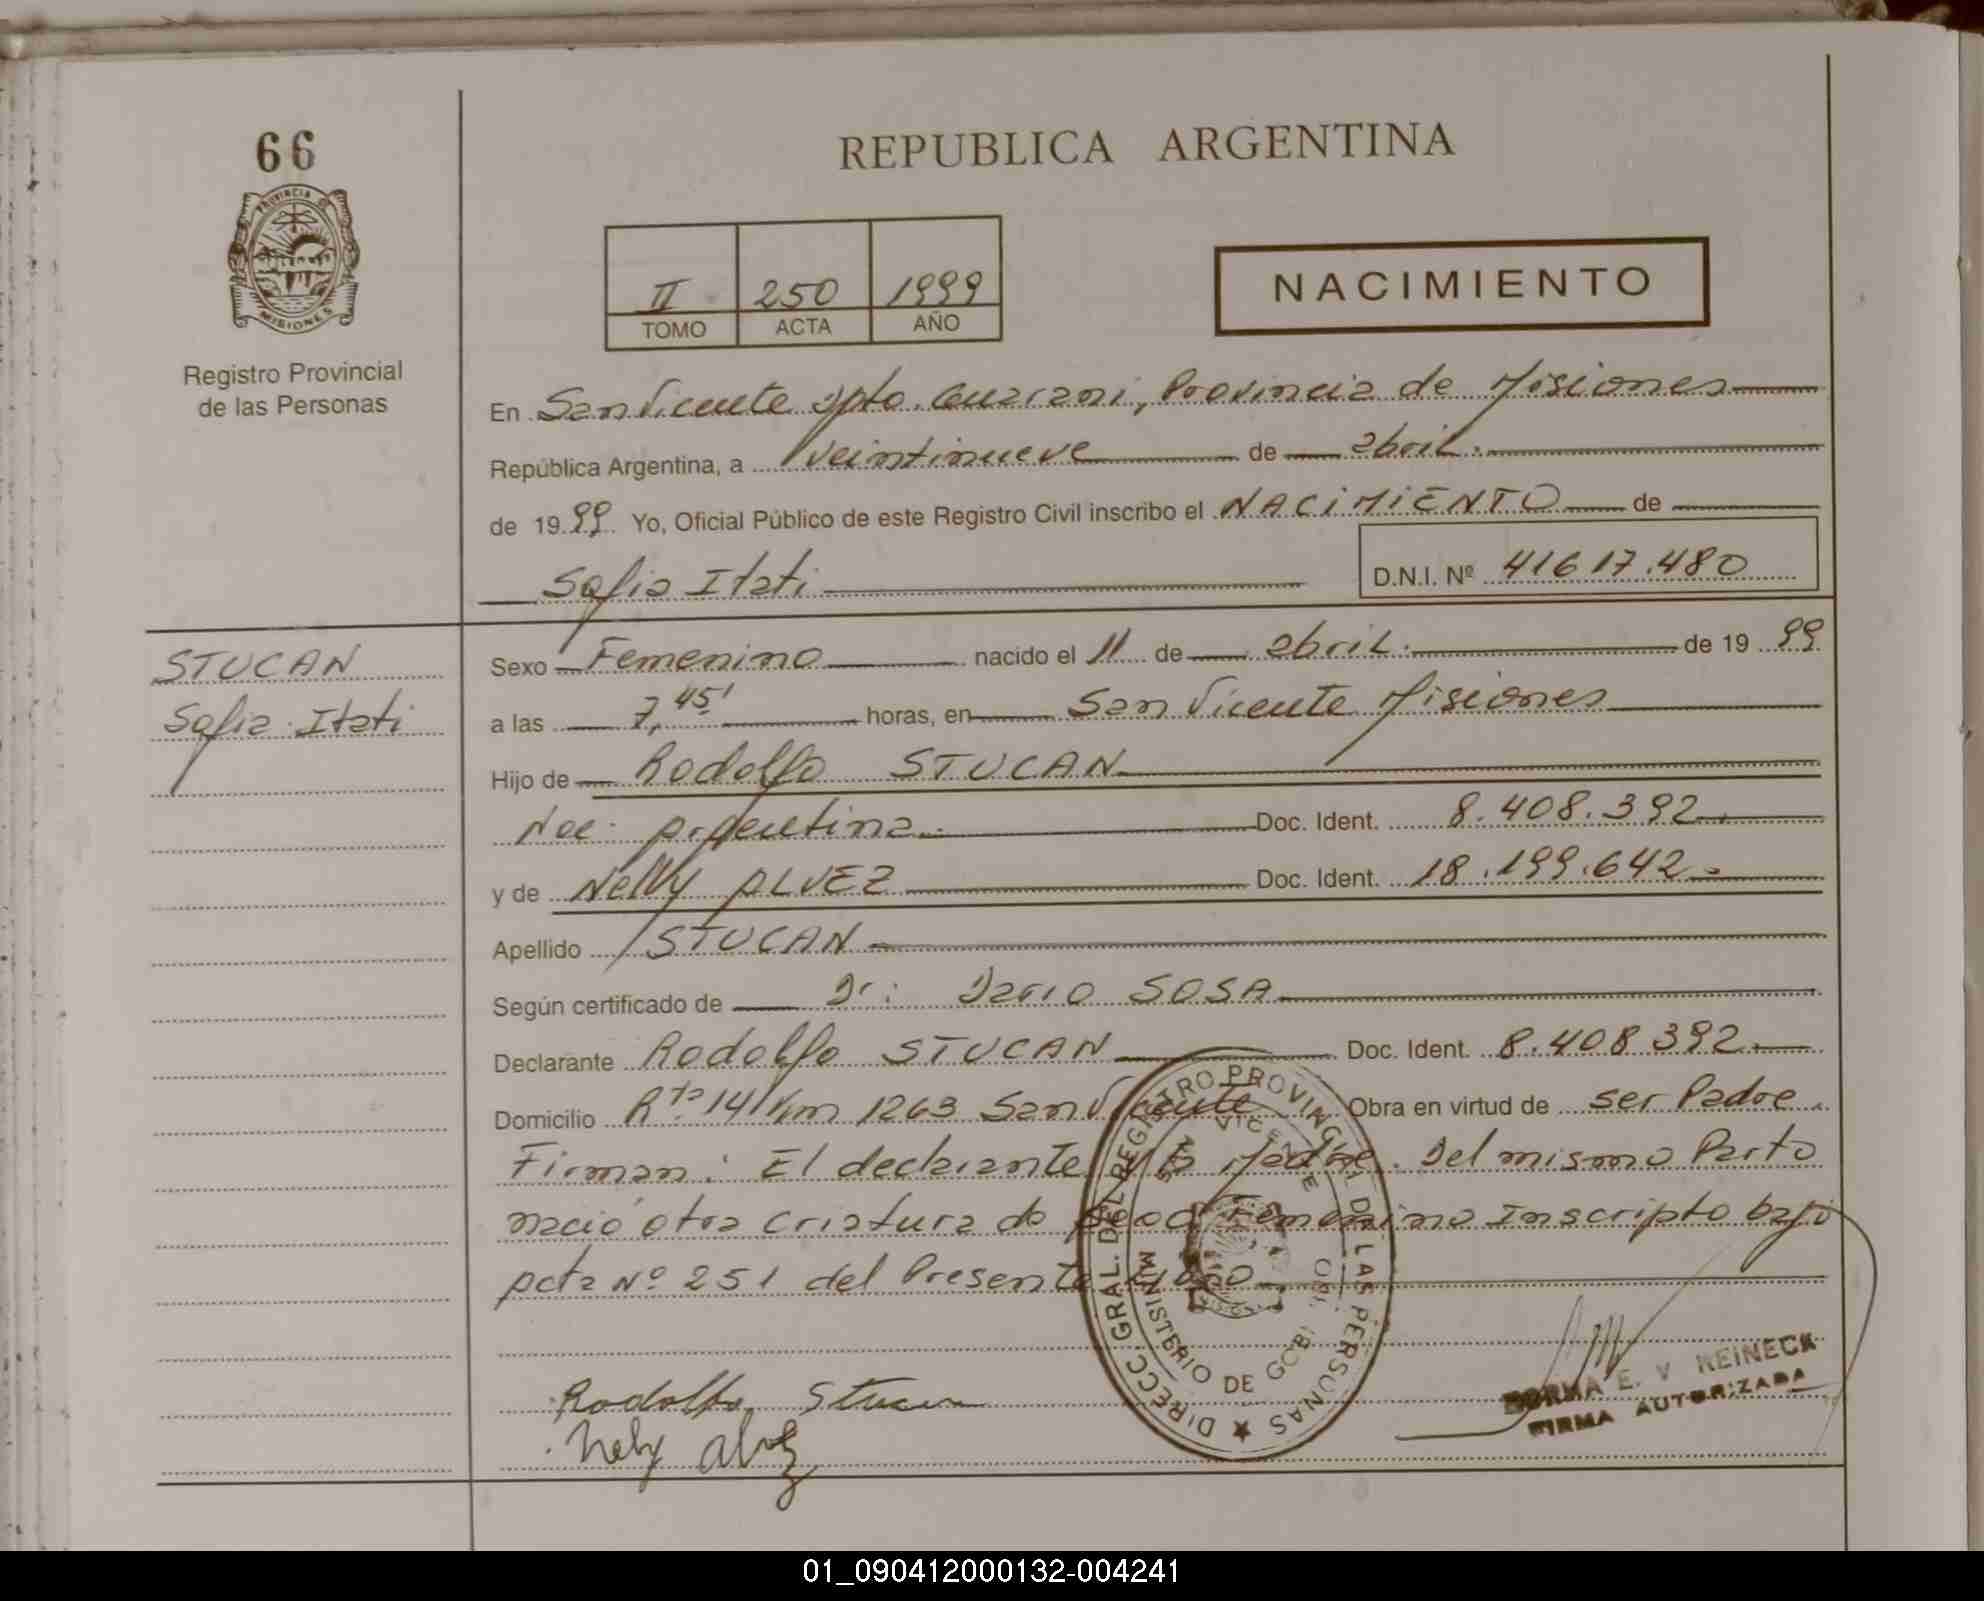 66
PROVINCIA DE
MISIONES
Registro Provincial
de las Personas
REPUBLICA ARGENTINA
II 250 1999
TOMO ACTA AÑO
NACIMIENTO
En San Vicente Dpto. Guarani, Provincia de Misiones
República Argentina, a veintinueve de abril.
de 19 99 Yo, Oficial Público de este Registro Civil inscribo el NACIMIENTO de
Sofia Itati
D.N.I. Nº 41617.480
STUCAN
Sofia Itati
Sexo Femenino nacido el 11 de abril. de 19 99
a las 7,45' horas, en San Vicente Misiones
Hijo de Rodolfo STUCAN
Nac: Argentina. Doc. Ident. 8.408.392.
y de Nelly ALVEZ Doc. Ident. 18.199.642.
Apellido STUCAN
Según certificado de Dr: Dario SOSA
Declarante Rodolfo STUCAN Doc. Ident. 8.408.392.
Domicilio Rta. 14 Km 1263 San Vicente Obra en virtud de ser Padre.
Firman: El declarante y la Madre. Del mismo Parto
nació otra criatura de Femenino Inscripto bajo
Acta Nº 251 del Presente
Rodolfo Stucan
Nely Alvez
DIRECC. GRAL. DEL REGISTRO PROVINCIAL DE LAS PERSONAS
SAN VICENTE
MINISTERIO DE GOBI
NORMA E. V REINECK
FIRMA AUTORIZADA
01_090412000132-004241